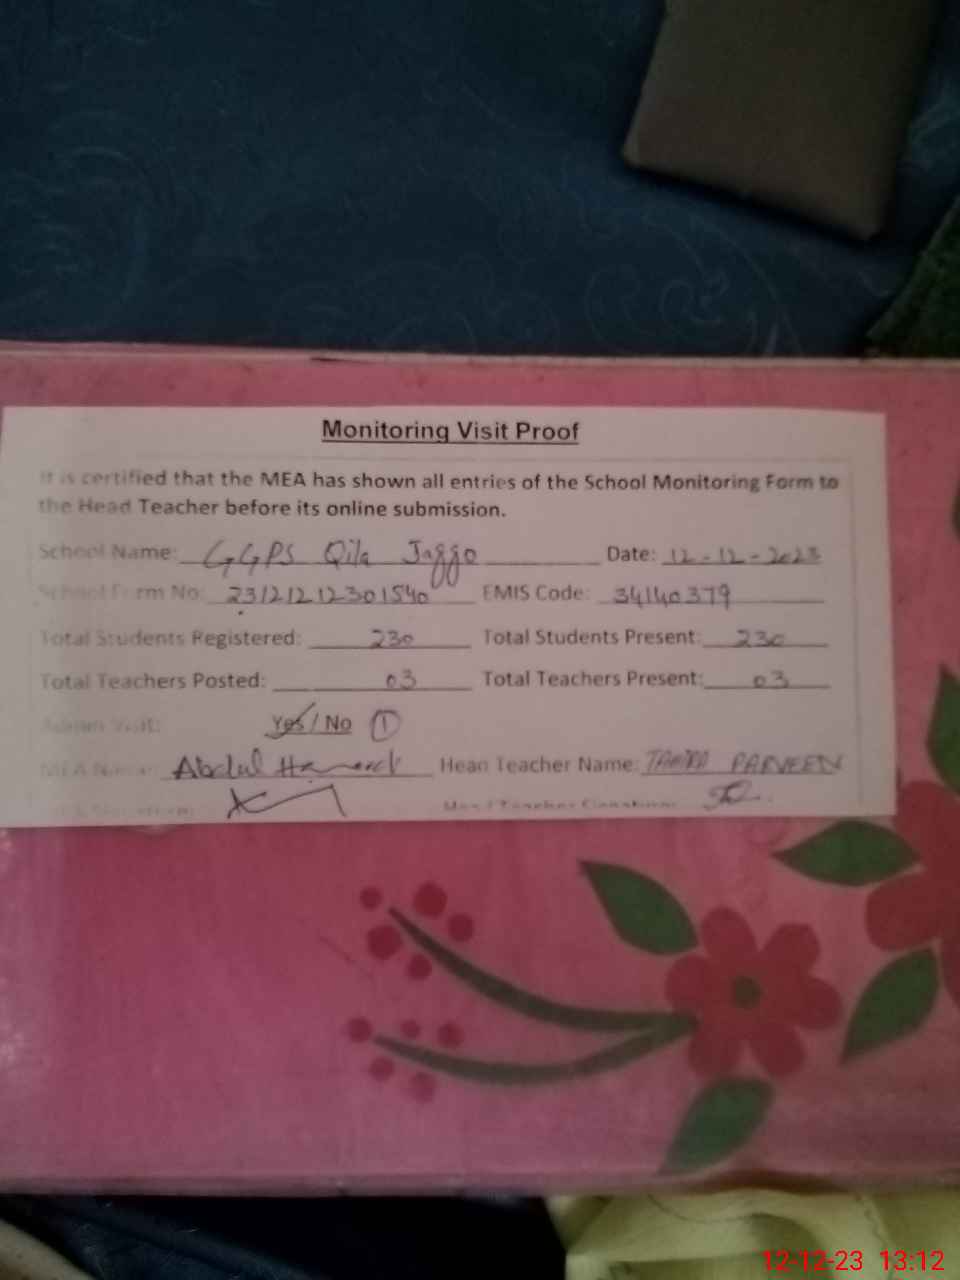 Monitoring Visit Proof
It is certified that the MEA has shown all entries of the School Monitoring Form to
the Head Teacher before its online submission.
School Name: GGPS Qila Jaggo Date: 12-12-2023
School Form No: 23121212301540 EMIS Code: 34140379
Total Students Registered: 230 Total Students Present: 230
Total Teachers Posted: 03 Total Teachers Present: 03
Admin Visit: Yes / No 1
MEA Name: Abdul Head Teacher Name: PARVEEN
Head Teacher Signature:
12-12-23 13:12